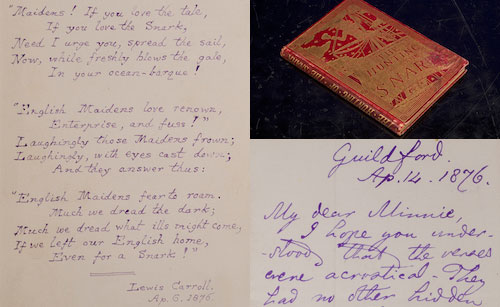 "Maidens! If you love the tale,
If you love the Snark,
Need I urge you, spread the sail,
Now, while freshly blows the gale,
In your ocean-barque!
"English Maidens love renown,
Enterprise, and fuss!"
Laughingly those Maidens frown;
Laughingly, with eyes cast down;
And they answer thus:
"English Maidens fear to roam.
Much we dread the dark;
Much we dread what ills might come,
If we left our English home,
Even for a Snark!"
Lewis Carroll.
Ap. 6. 1876.
THE
HUNTING
OF THE
SNARK
THE HUNTING OF THE SNARK
Guildford.
Ap. 14. 1876.
My dear Minnie,
I hope you under-
-stood that the verses
were acrostical - They
had no other hidden